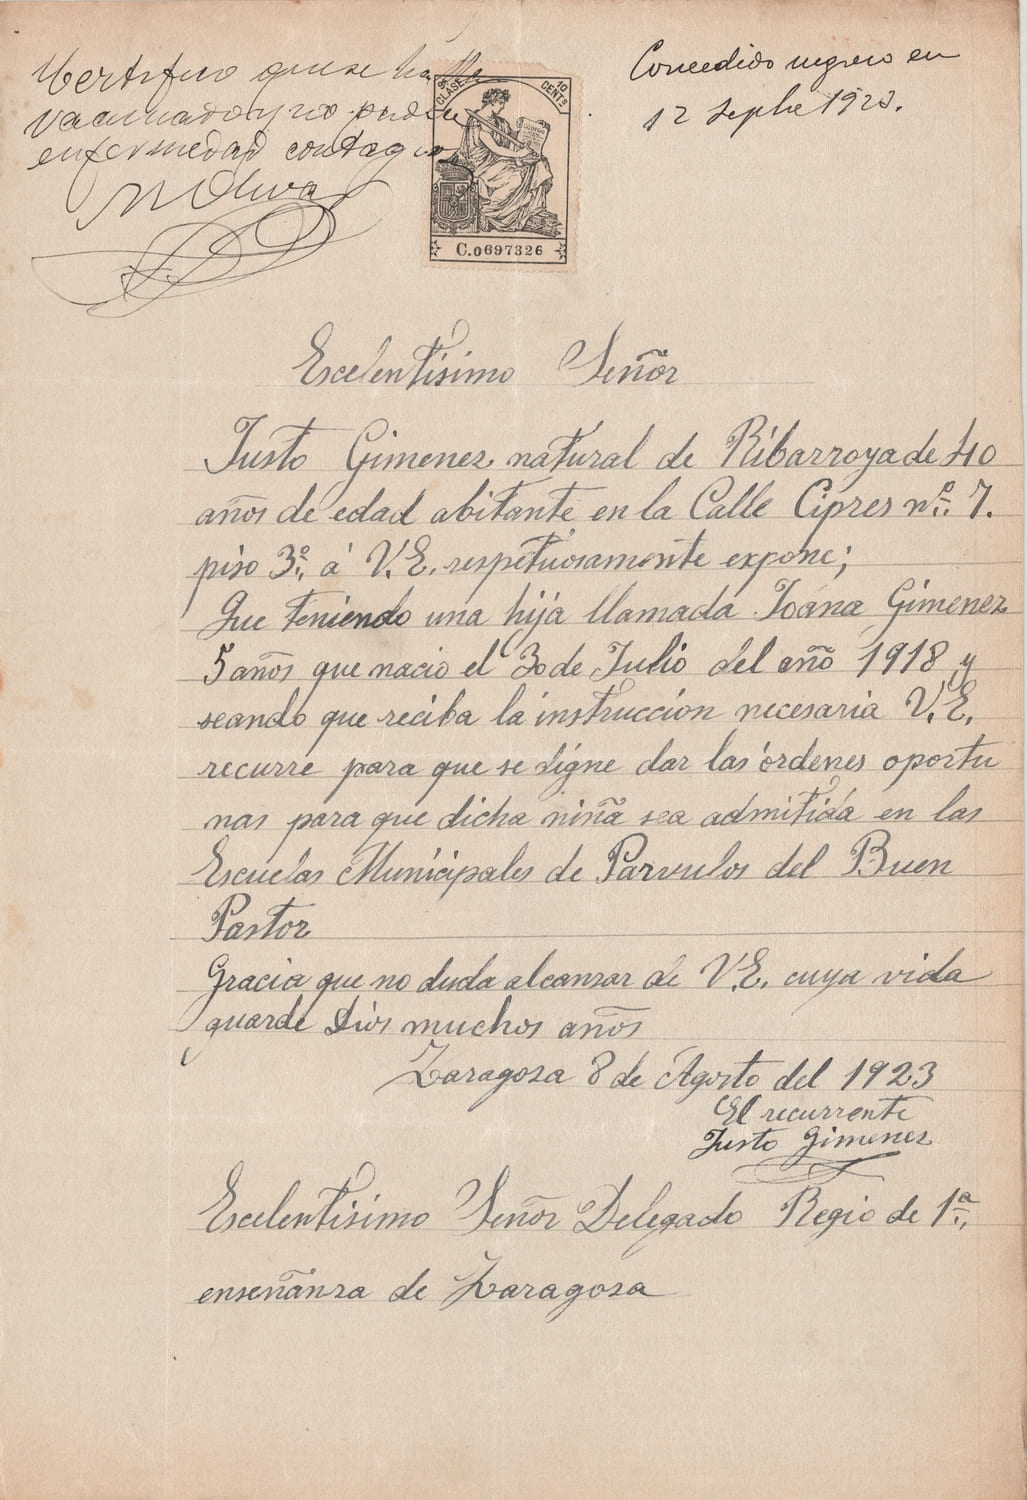 Certifico que se halla
vacunado y no padece
enfermedad contagiosa
M Oliva
9ª CLASE 10 CENTS
C.0697326
Concedido ingreso en
12 Sepbre 1923.
Escelentísimo Señor
Justo Gimenez natural de Ribarroya de 40
años de edad abitante en la Calle Cipres nº. 7.
piso 3º. á V.E. respetuosamente expone;
Que teniendo una hija llamada Joana Gimenez
5 años que nacio el 30 de Julio del año 1918 y
seando que reciba la instruccion necesaria V.E.
recurre para que se digne dar las órdenes oportu
nas para que dicha niña sea admitida en las
Escuelas Municipales de Parvulos del Buen
Pastor
Gracia que no duda alcanzar de V.E. cuya vida
guarde Dios muchos años
Zaragosa 8 de Agosto del 1923
El recurrente
Justo Gimenez
Escelentisimo Señor Delegado Regio de 1ª.
enseñansa de Zaragosa